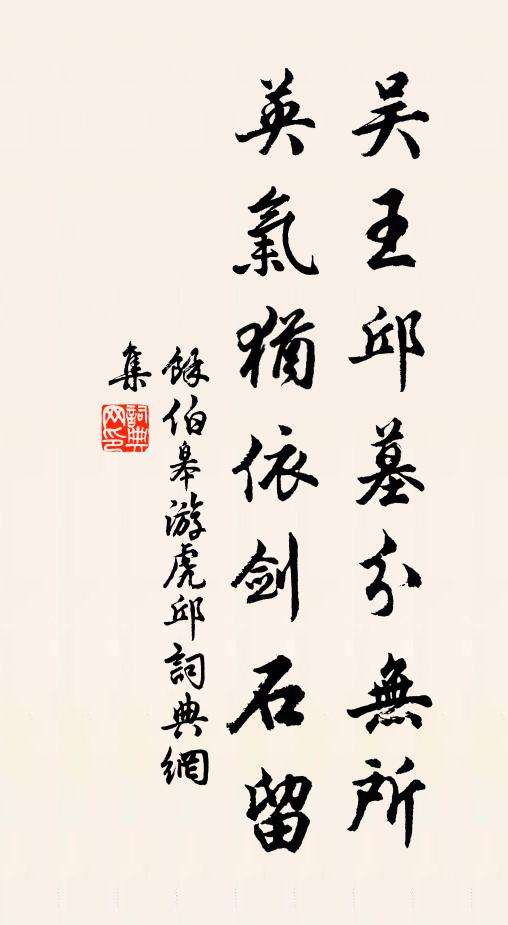 吴王邱墓分無所
英氣猶依劍石留
餘伯皋游虎邱詞典網
集
詞典
网印